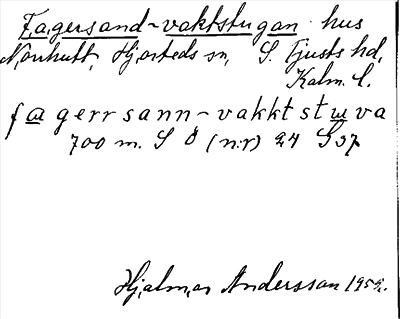 Fagersand-vaktstugan hus
Norrhult, Hjorteds sn, S. Tjusts hd,
Kalm. l.
fagerrsann-vakktstuva
700 m. S Ö (nr) 24 S37
Hjalmar Andersson 1959.